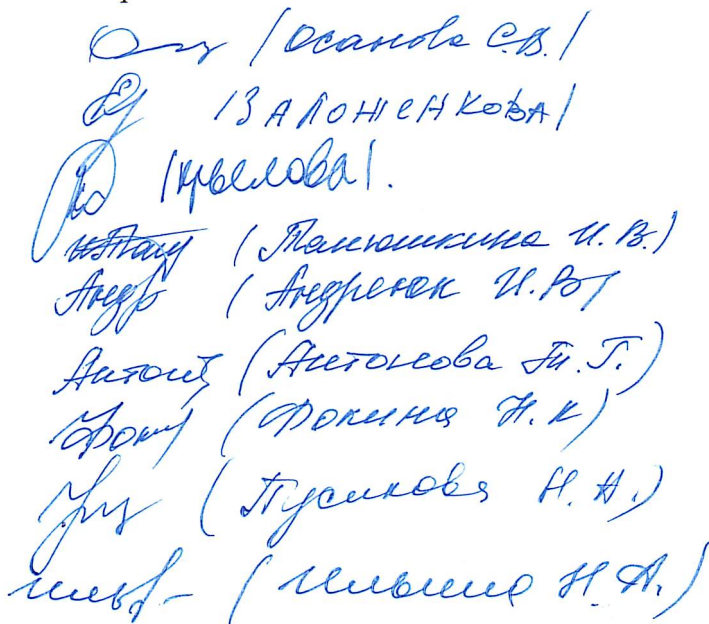 /Осанова С.В./
/ЗАЛОЖЕНКОВА/
/Крылова/.
(Танюшкина И.В.)
Андр (Андреюк И.В/
Антон (Антонова Т.Г.)
Фок (Фокина Н.К)
(Пусикова Н.А.)
Ильи- (Ильина Н.А.)